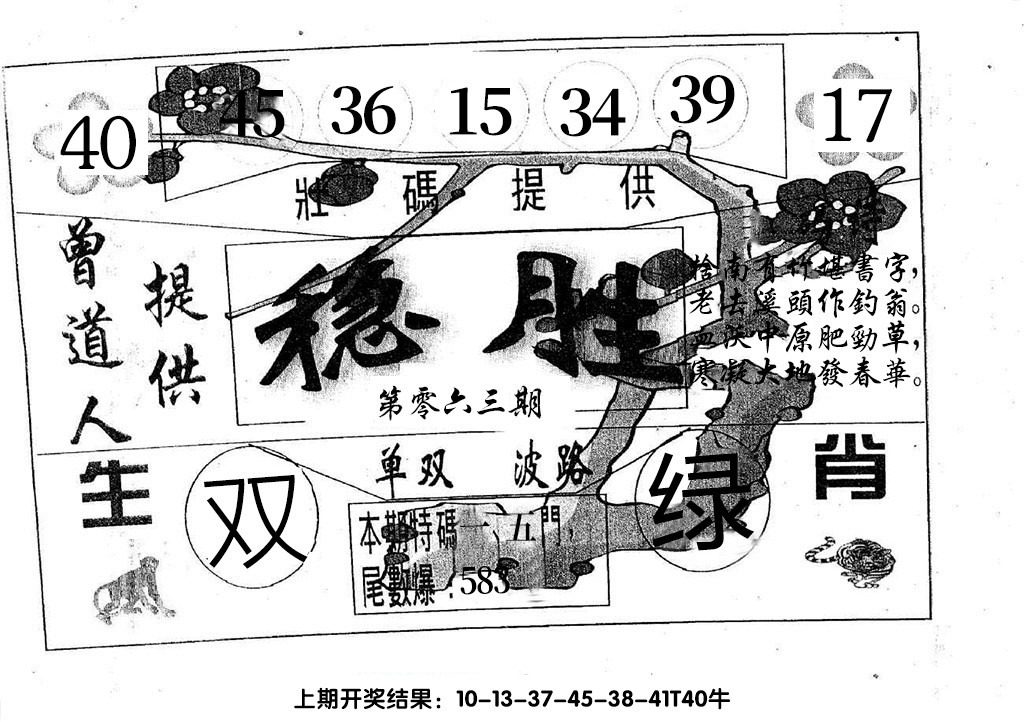 40 45 36 15 34 39 17
壯碼提供
曾道人
提供
稳胜
第零六三期
特
捨南有竹堪書字，
老去溪頭作釣翁。
血沃中原肥勁草，
寒凝大地發春華。
生肖
单双 波路
双
绿
本期特碼一、五門，
尾數爆：583
上期开奖结果：10-13-37-45-38-41T40牛